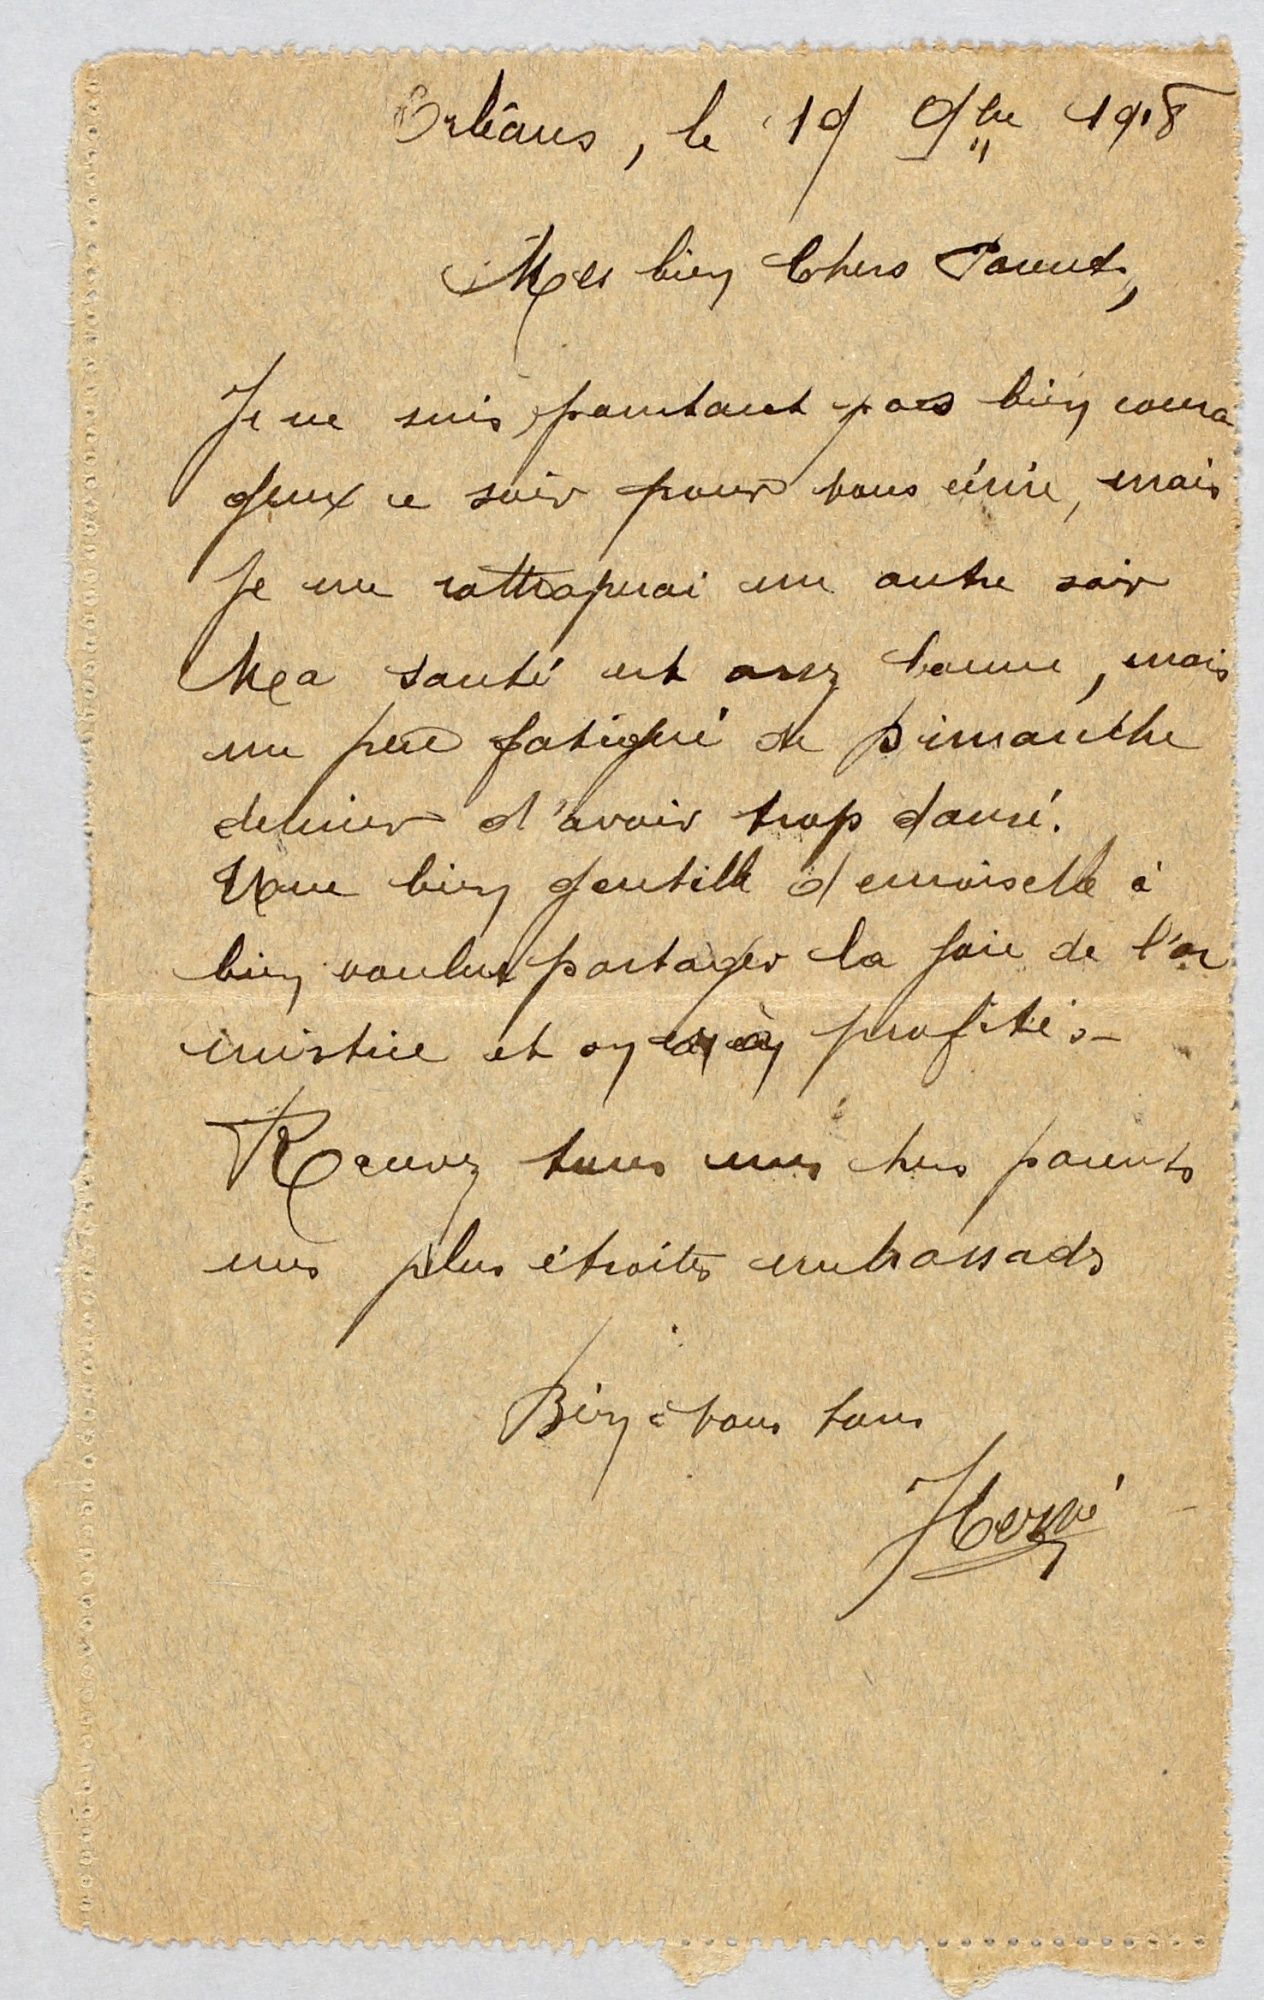 Orléans, le 19 9bre 1918
Mes bien Chers Parents,
Je ne suis pourtant pas bien coura
geux ce soir pour vous écrire, mais
je me rattraperai un autre soir
Ma santé est assez bonne, mais
un peu fatigué de Dimanche
dernier d'avoir trop dansé.
Une bien gentille demoiselle à
bien voulut partager la joie de l'ar
mistice et on en a profités
Recevez tous mes chers parents
mes plus étroites embrassads
Bien à vous tous
Hervé